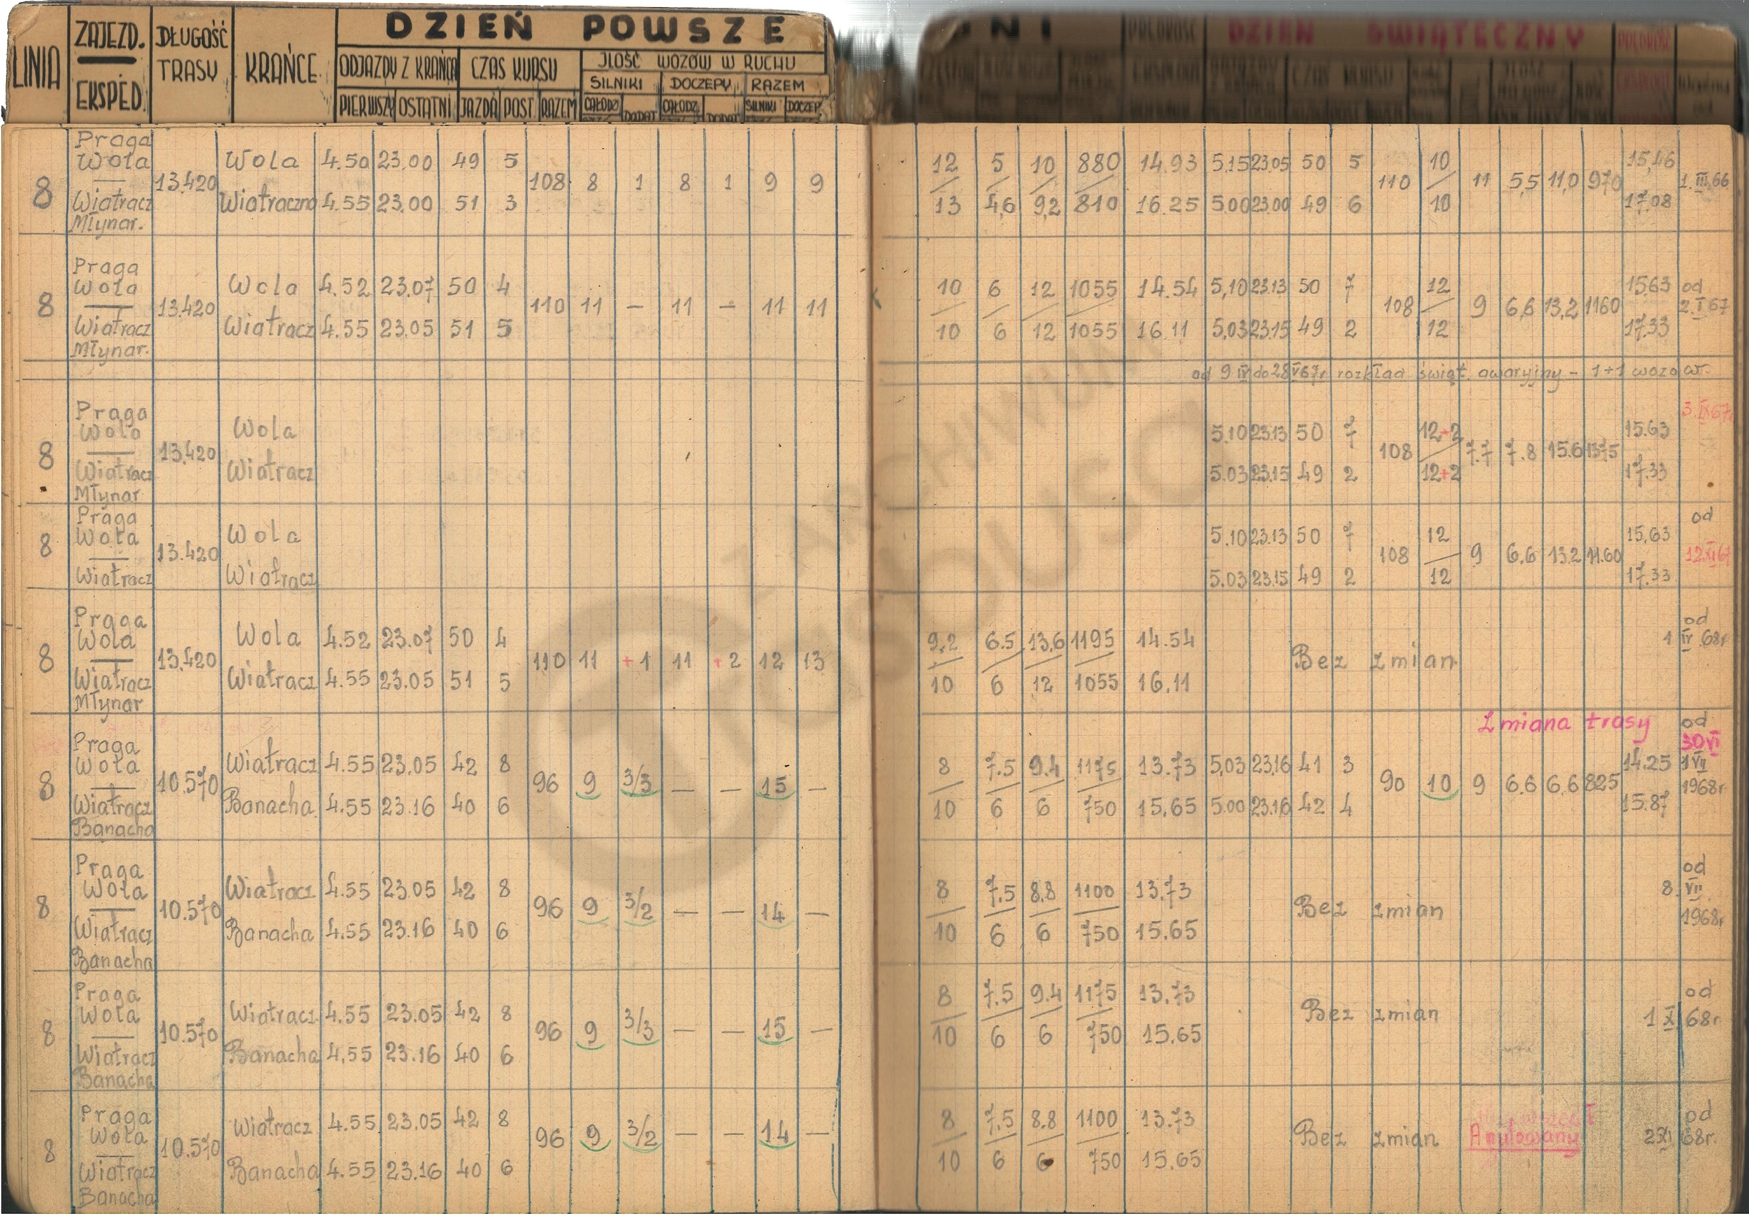 DZIEŃ POWSZE
LINIA ZAJEZD. EKSPED. DŁUGOŚĆ TRASY KRAŃCE ODJAZDY Z KRAŃCA CZAS KURSU JLOŚĆ WOZÓW W RUCHU
SILNIKI DOCZEPY RAZEM
PIERWSZY OSTATNI JAZDA POST. RAZEM CAŁODZ DODAT CAŁODZ DODAT SILNIKI DOCZEP
NI DZIEŃ ŚWIĄTECZNY
Praga
Wola Wola 4.50 23.00 49 5 12 5 10 880 14.93 5.15 23.05 50 5 10 15,46
8 13,420 108 8 1 8 1 9 9 110 11 5,5 11,0 970 1.III.66
Wiatracz Wiatraczna 4.55 23.00 51 3 13 4,6 9,2 810 16.25 5.00 23.00 49 6 10 17.08
Młynar.
Praga
Wola Wola 4.52 23.07 50 4 10 6 12 1055 14.54 5,10 23.13 50 7 12 15.63 od
8 13.420 110 11 – 11 – 11 11 108 9 6,6 13,2 1160 2.I 67
Wiatracz Wiatracz 4.55 23.05 51 5 10 6 12 1055 16.11 5.03 23.15 49 2 12 17.33
Młynar.
od 9 IV do 28 V 67r rozkład świąt. awaryjny – 1+1 wozo wr.
Praga 3.IX.67r
Wola Wola 5.10 23.13 50 7 12+2 15.63
8 13,420 108 7.7 7.8 15.6 1375
Wiatracz Wiatracz 5.03 23.15 49 2 12+2 17.33
Młynar
Praga od
Wola Wola 5.10 23.13 50 7 12 15,63
8 13.420 108 9 6.6 13.2 11.60
Wiatracz Wiatracz 5.03 23.15 49 2 12 17.33
Praga od
Wola Wola 4.52 23.07 50 4 9,2 6.5 13,6 1195 14.54 1 IV 68r
8 13,420 110 11 +1 11 +2 12 13 Bez zmian
Wiatracz Wiatracz 4.55 23.05 51 5 10 6 12 1055 16.11
Młynar
Zmiana trasy od
Praga 30 VI
Wola Wiatracz 4.55 23.05 42 8 8 7.5 9.4 1175 13.73 5,03 23.16 41 3 14.25 1 VII
8 10.570 96 9 3/3 — — 15 — 90 10 9 6.6 6,6 825 1968r
Wiatracz Banacha 4.55 23.16 40 6 10 6 6 750 15,65 5.00 23.16 42 4 15.87
Banacha
Praga od
Wola Wiatracz 4.55 23.05 42 8 8 7.5 8.8 1100 13,73 8. VII
8 10.570 96 9 3/2 — — 14 — Bez zmian 1968r
Wiatracz Banacha 4.55 23.16 40 6 10 6 6 750 15.65
Banacha
Praga od
Wola Wiatracz 4.55 23.05 42 8 8 7.5 9.4 1175 13.73 1 X 68r
8 10.570 96 9 3/3 — — 15 — Bez zmian
Wiatracz Banacha 4,55 23.16 40 6 10 6 6 750 15.65
Banacha
Praga od
Wola Wiatracz 4.55 23.05 42 8 8 7.5 8.8 1100 13.73
8 10.570 96 9 3/2 — — 14 — Bez zmian Anulowany 68r.
Wiatracz Banacha 4.55 23.16 40 6 10 6 6 750 15,65
Banacha
Z ARCHIWUM
TRASBUSA